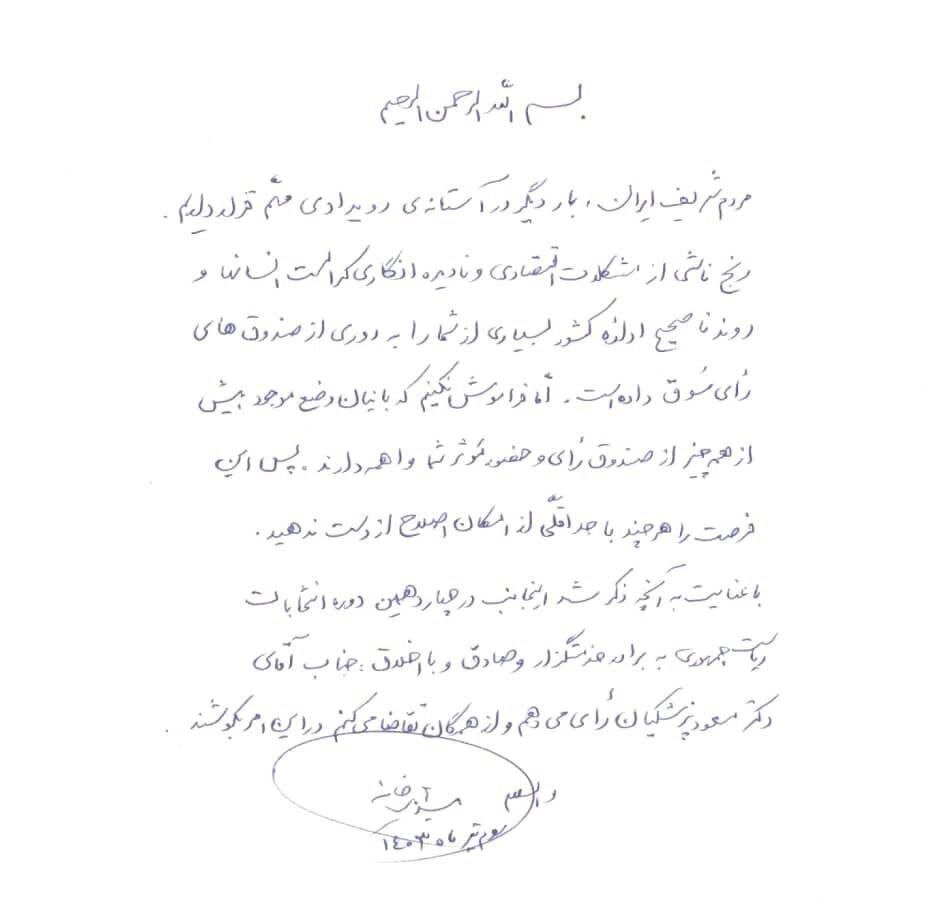 بسم الله الرحمن الرحیم
مردم شریف ایران، بار دیگر در آستانه‌ی رویدادی مهّم قرار داریم.
رنج ناشی از مشکلات اقتصادی و نادیده انگاری کرامت انسانها و
روند ناصحیح اداره کشور بسیاری از شما را به دوری از صندوق های
رأی سُوق داده است. امّا فراموش نکنیم که بانیان وضع موجود بیش
از همه چیز از صندوق رأی و حضور مُوثر شما واهمه دارند. پس این
فرصت را هر چند با حداقلّی از امکان اصلاح از دست ندهید.
با عنایت به آنچه ذکر شد اینجانب در چهاردهمین دوره انتخابات
ریاست جمهوری به برادر خدمتگزار و صادق و با اخلاق: جناب آقای
دکتر مسعود پزشکیان رأی می دهم و از همگان تقاضا می کنم در این امر بکوشند.
والسلام
تیر ماه ۱۴۰۳